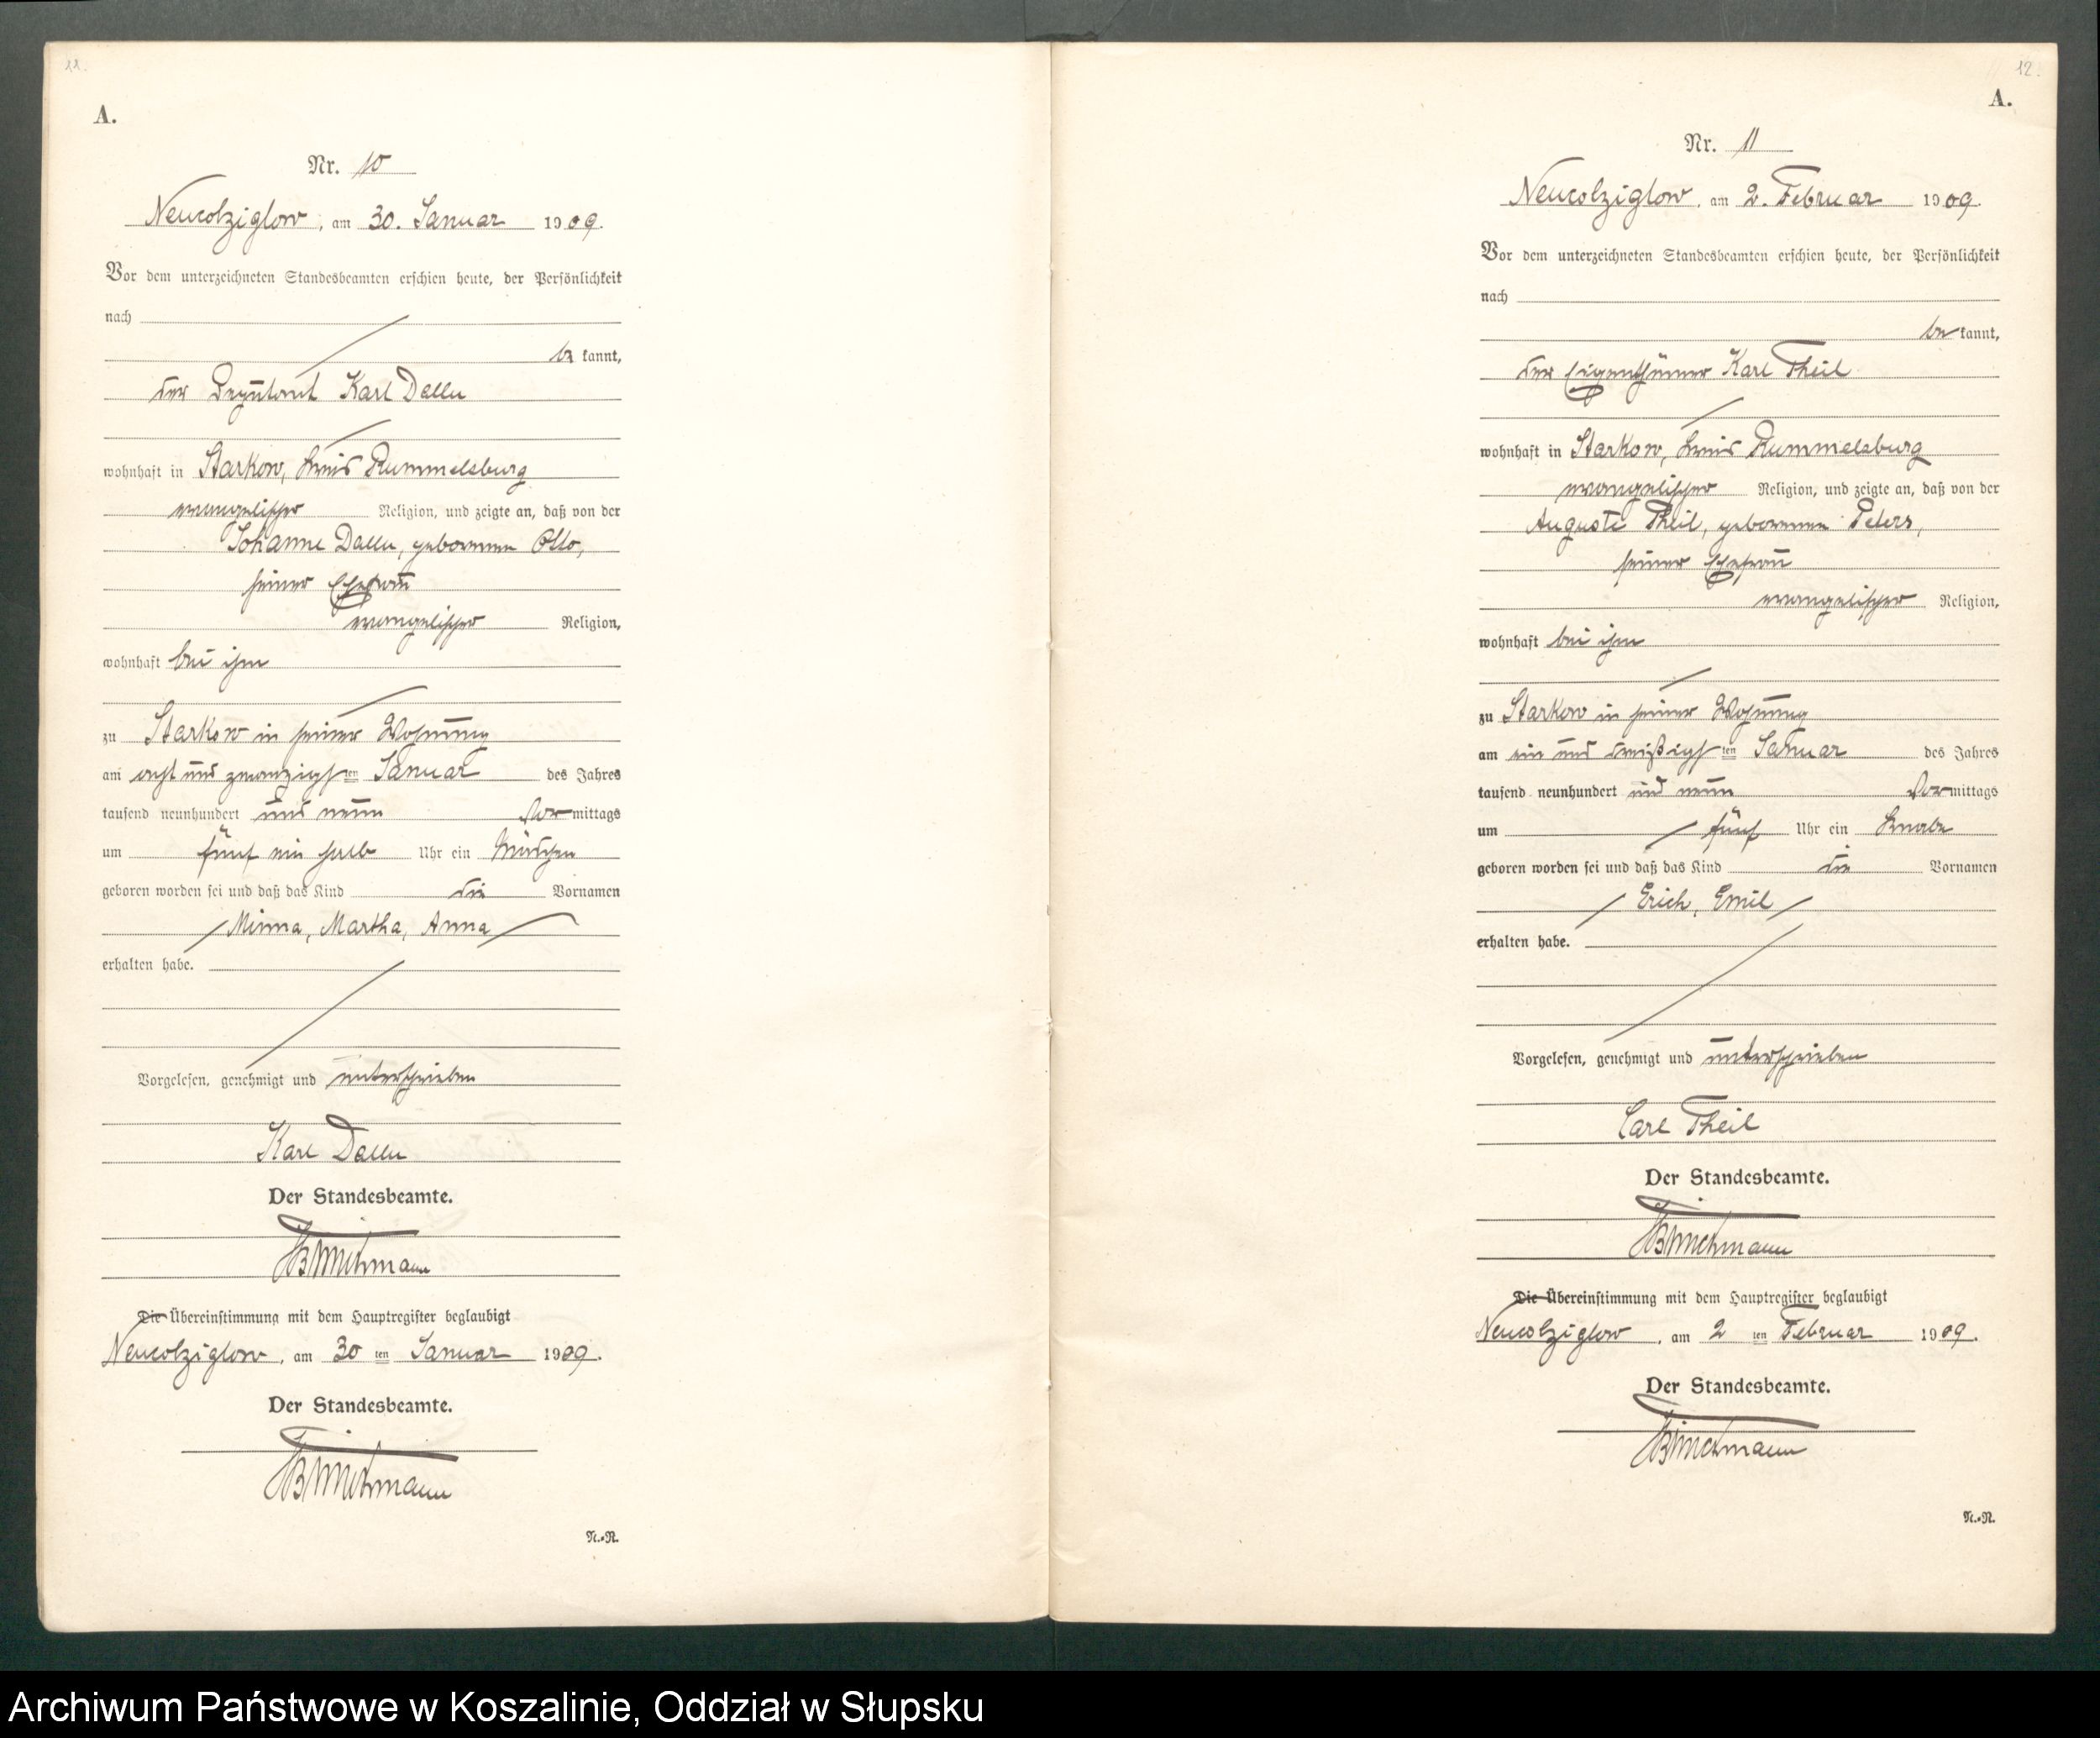 11.
A.
Nr. 10
Neukolziglow, am 30. Januar 1909.
Vor dem unterzeichneten Standesbeamten erschien heute, der Persönlichkeit
nach
be kannt,
der Deputant Karl
wohnhaft in Starkow, Kreis Rummelsburg
evangelischer Religion, und zeigte an, daß von der
Johanne geborenen Otto,
seiner Ehefrau
evangelischer Religion,
wohnhaft bei ihm
zu Starkow in seiner Wohnung
am acht und zwanzigsten Januar des Jahres
tausend neunhundert und neun Vormittags
um fünf ein halb Uhr ein Mädchen
geboren worden sei und daß das Kind die Vornamen
Minna, Martha, Anna
erhalten habe.
Vorgelesen, genehmigt und unterschrieben
Karl
Der Standesbeamte.
Die Übereinstimmung mit dem Hauptregister beglaubigt
Neukolziglow, am 30 ten Januar 1909.
Der Standesbeamte.
N.-N.
12.
A.
Nr. 11
Neukolziglow, am 2. Februar 1909.
Vor dem unterzeichneten Standesbeamten erschien heute, der Persönlichkeit
nach
be kannt,
der Eigenthümer Karl Theil
wohnhaft in Starkow, Kreis Rummelsburg
evangelischer Religion, und zeigte an, daß von der
Auguste Theil, geborenen Peters,
seiner Ehefrau
evangelischer Religion,
wohnhaft bei ihm
zu Starkow in seiner Wohnung
am ein und dreißigsten Januar des Jahres
tausend neunhundert und neun Vormittags
um fünf Uhr ein Knabe
geboren worden sei und daß das Kind die Vornamen
Erich, Emil
erhalten habe.
Vorgelesen, genehmigt und unterschrieben
Carl Theil
Der Standesbeamte.
Die Übereinstimmung mit dem Hauptregister beglaubigt
Neukolziglow, am 2 ten Februar 1909.
Der Standesbeamte.
N.-N.
Archiwum Państwowe w Koszalinie, Oddział w Słupsku